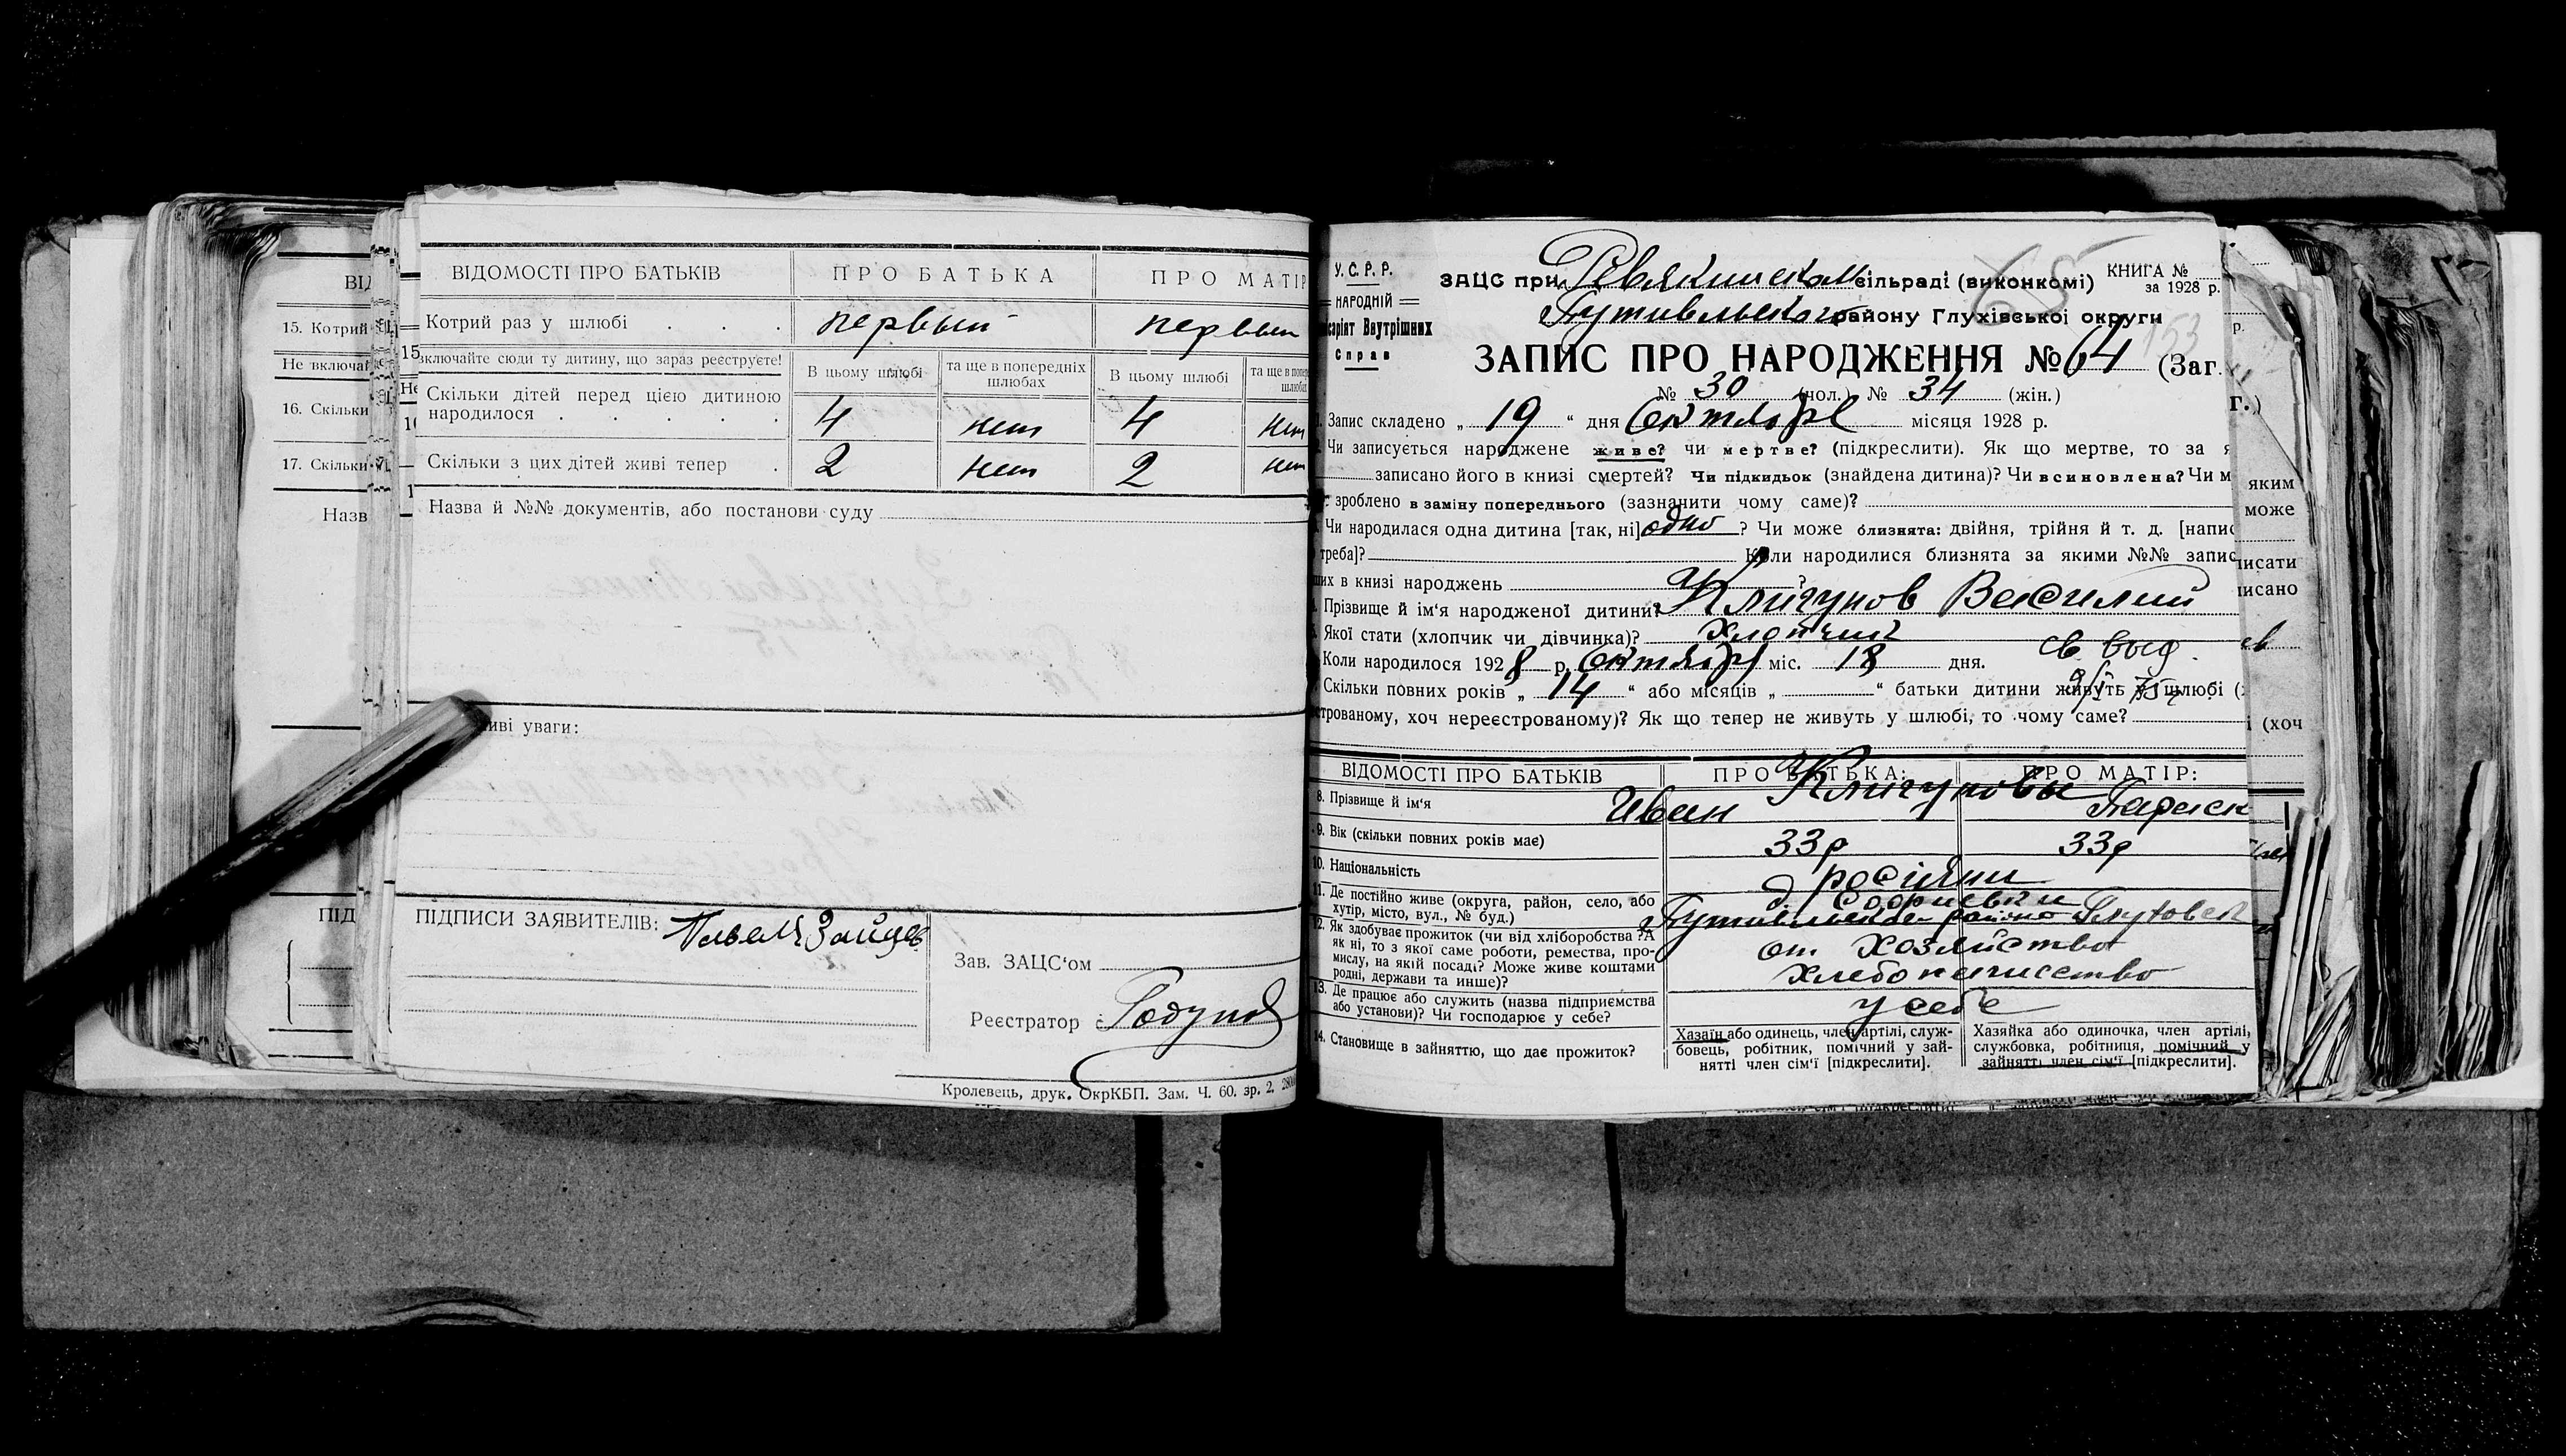 ВІДОМОСТІ ПРО БАТЬКІВ ПРО БАТЬКА ПРО МАТІР
Котрий раз у шлюбі первый первый
включайте сюди ту дитину, що зараз реєструєте! В цьому шлюбі та ще в попередніх шлюбах В цьому шлюбі та ще в
Скільки дітей перед цією дитиною
народилося 4 нет 4 нет
Скільки з цих дітей живі тепер 2 нет 2 нет
Назва й №№ документів, або постанови суду
уваги:
ПІДПИСИ ЗАЯВИТЕЛІВ: Павел Зайцев
Зав. ЗАЦС'ом
Реєстратор Годунов
Кролевець, друк. ОкрКБП. Зам. Ч. 60. зр. 2.
15. Котрий
Не включай
16. Скільки
17. Скільки
Назв
ПІД
У.С.Р.Р.
НАРОДНІЙ
Внутрішних
Справ
ЗАЦС при Ревякинском сільраді (виконкомі) КНИГА №
за 1928 р.
Путивльского району Глухівської округи
ЗАПИС ПРО НАРОДЖЕННЯ № 64 (Заг.
№ 30 (чол.) № 34 (жін.)
Запис складено „ 19 “ дня Октября місяця 1928 р.
Чи записується народжене живе? чи мертве? (підкреслити). Як що мертве, то за
записано його в книзі смертей? Чи підкидьок (знайдена дитина)? Чи всиновлена? Чи
зроблено в заміну попереднього (зазначити чому саме)?
Чи народилася одна дитина [так, ні] одно ? Чи може близнята: двійня, трійня й т. д. [напис
треба]? Коли народилися близнята за якими №№ запис
них в книзі народжень ?
Прізвище й ім'я народженої дитини? Клигунов Василий
Якої стати (хлопчик чи дівчинка)? Хлопчик
Коли народилося 1928 р. Октября міс. 18 дня. св. выд.
Скільки повних років „ 14 “ або місяців „ “ батьки дитини живуть у шлюбі
строваному, хоч нереєстрованому)? Як що тепер не живуть у шлюбі, то чому саме?
ВІДОМОСТІ ПРО БАТЬКІВ ПРО БАТЬКА: ПРО МАТІР:
8. Прізвище й ім'я Иван Клигуновы
9. Вік (скільки повних років має) 33р 33р
10. Національність росіяни
11. Де постійно живе (округа, район, село, або
хутір, місто, вул., № буд.)
12. Як здобуває прожиток (чи від хліборобства? А
як ні, то з якої саме роботи, ремества, про-
мислу, на якій посаді? Може живе коштами
родні, держави та инше)? от хозяйства
13. Де працює або служить (назва підприємства
або установи)? Чи господарює у себе? у себе
14. Становище в зайняттю, що дає прожиток?
Хазаїн або одинець, член артілі, служ-
бовець, робітник, помічний у зай-
нятті член сім'ї [підкреслити].
Хазяйка або одиночка, член артілі,
службовка, робітниця, помічний у
зайнятті член сім'ї [підкреслити].
яким
може
писати
писано
(хоч